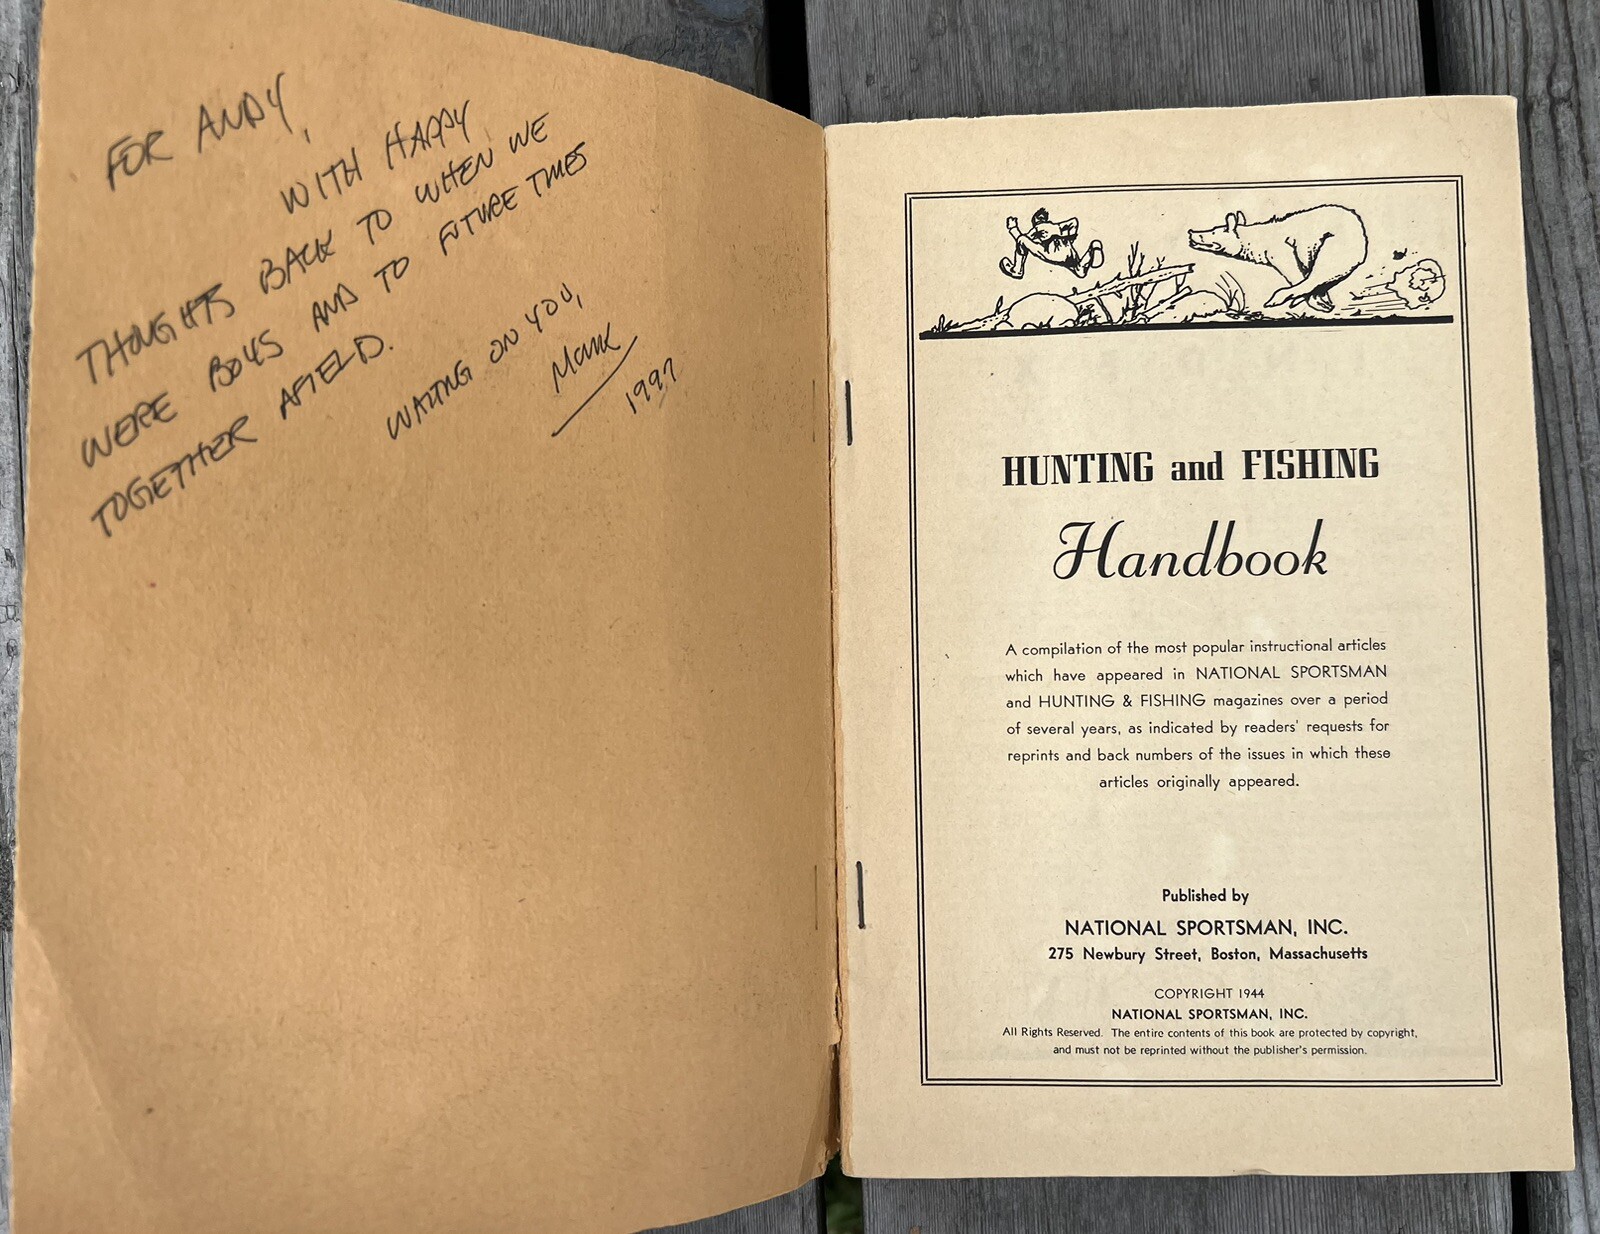 FOR ANDY,
WITH HAPPY
THOUGHTS BACK TO WHEN WE
WERE BOYS AND TO FUTURE TIMES
TOGETHER AFIELD.
WAITING ON YOU,
Mark
1997
HUNTING and FISHING
Handbook
A compilation of the most popular instructional articles
which have appeared in NATIONAL SPORTSMAN
and HUNTING & FISHING magazines over a period
of several years, as indicated by readers' requests for
reprints and back numbers of the issues in which these
articles originally appeared.
Published by
NATIONAL SPORTSMAN, INC.
275 Newbury Street, Boston, Massachusetts
COPYRIGHT 1944
NATIONAL SPORTSMAN, INC.
All Rights Reserved. The entire contents of this book are protected by copyright,
and must not be reprinted without the publisher's permission.